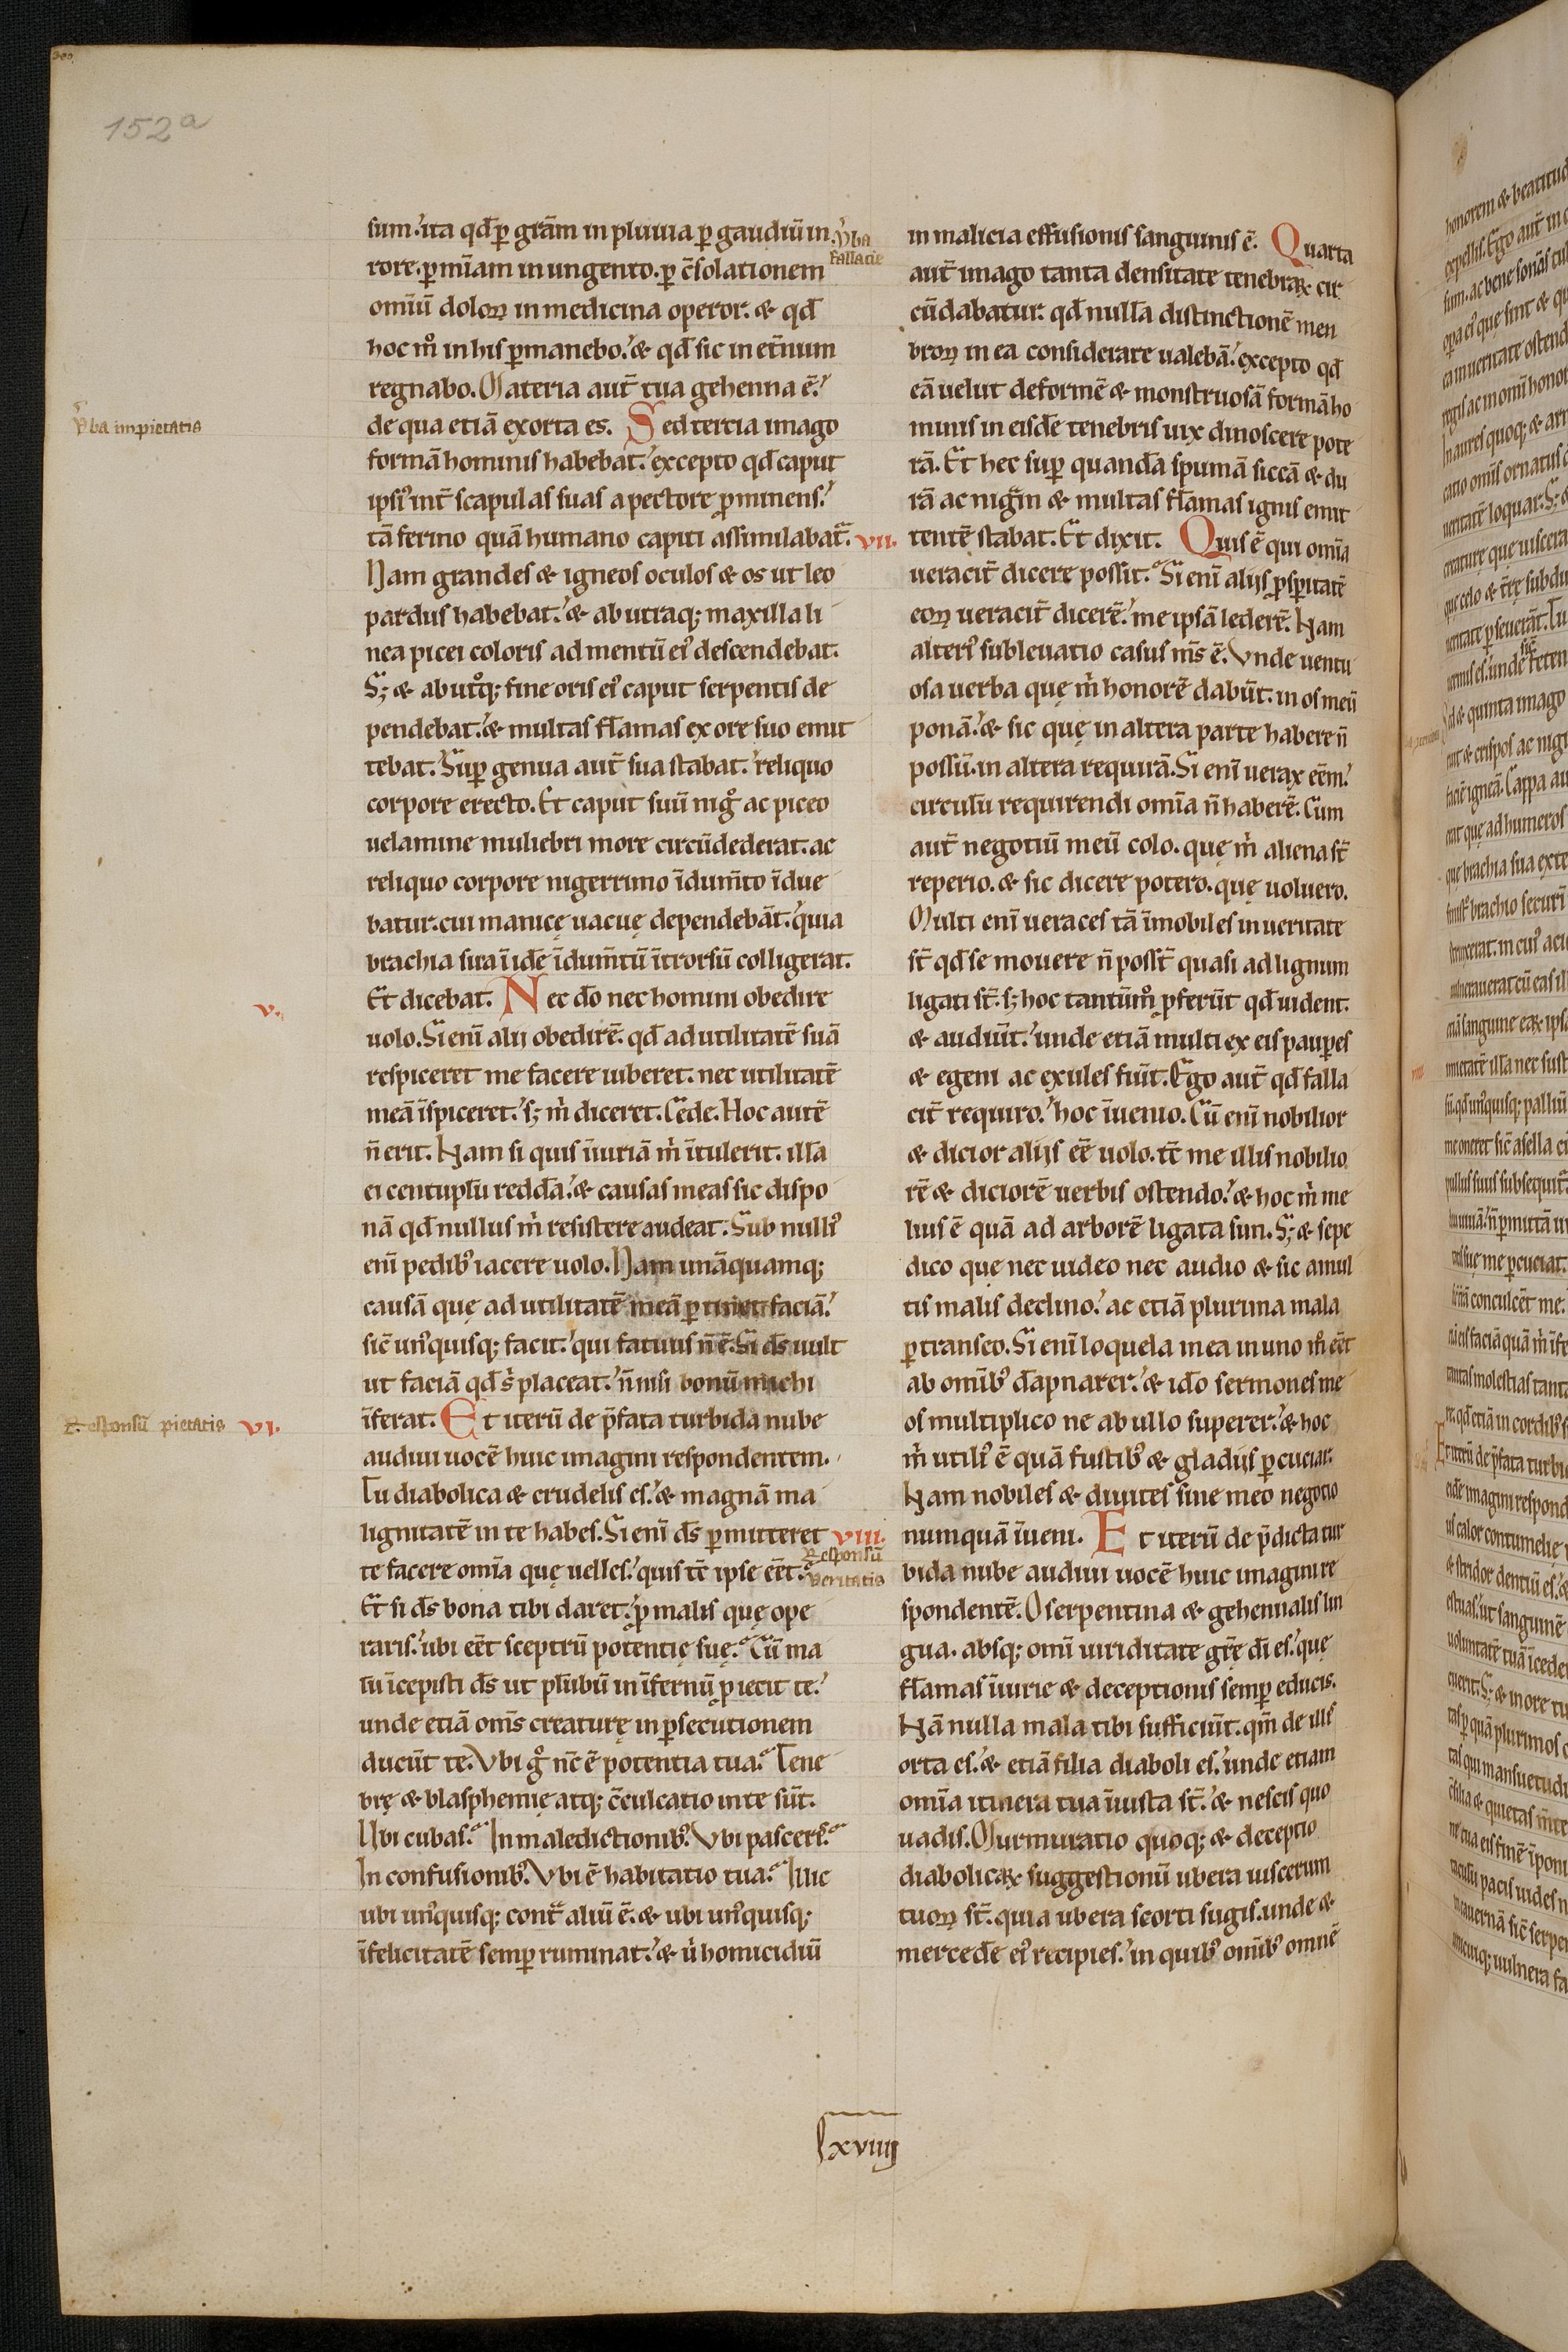 152a
sum.' ita qd̄ p̲ grām in pluuia p̲ gaudiū in
rore. p̲ mīam in ungento. p̲ c̄solationem
omīū doloꝝ in medicina operor. & qd̄
hoc m̊ in his p̲manebo.' & qd̄ sic in et̄num
regnabo. Materia aut̄ tua gehenna ē.'
de qua etiā exorta es. Sed tercia imago
formā hominis habebat.' excepto qd̄ caput
ipsi' int̄ scapulas suas a pectore p̲minens.'
tā ferino quā humano capiti assimilabat̄.
Nam grandes & igneos oculos & os ut leo
pardus habebat.' & ab utraq; maxilla li
nea picei coloris ad mentū ei' descendebat.
S; & ab utͦq; fine oris ei' caput serpentis de
pendebat.' & multas flāmas ex ore suo emit
tebat. Sup̲ genua aut̄ sua stabat.' reliquo
corpore erecto. Et caput suū nigͦ ac piceo
uelamine muliebri more circūdederat. ac
reliquo corpore nigerrimo īdum̄to īdue
batur. cui manicę uacuę dependebāt.' quia
brachia sua ī idē īdum̄tū ītrorsū colligerat.
Et dicebat. Nec dō nec homini obedire
uolo. Si enī alij obedirē. qd̄ ad utilitatē suā
respiceret me facere iuberet. nec utilitatē
meā īspiceret.' s; m̍ diceret. Cēde. Hoc autē
n̄ erit. Nam si quis īiuriā m̍ ītulerit. illā
ei centuplū reddā.' & causas meas sic dispo
nā qd̄ nullus m̍ resistere audeat. Sub nulli'
enī pedib' iacere uolo. Nam unāquamq;
causā quę ad utilitatē meā p̲tinet faciā.'
sic̄ un'quisq; facit.' qui fatuus n̄ ē. Si ds̄ uult
ut faciā qd̄ s̍ placeat.' n̄ nisi bonū michi
īferat. Et iterū de p̄fata turbida nube
audiui uocē huic imagini respondentem.
Tu diabolica & crudelis es.' & magnā ma
lignitatē in te habes. Si enī ds̄ p̲mitteret
te facere omīa quę uelles.' quis tc̄ ipse eēt.
Et si ds̄ bona tibi daret.' p̲ malis quę ope
raris.' ubi eēt sceptrū potentię suę. Cū ma
lū īcepisti ds̄ ut plūbū in īfernū p̲iecit te.'
unde etiā om̄s creaturę in p̲secutionem
ducūt te. Vbi gͦ nc̄ ē potentia tua. Tene
brę & blasphemię atq; c̄culcatio in te sūt.
Ubi cubas. In maledictionib'. Vbi pasceris.
In confusionib'. Vbi ē habitatio tua. Illic
ubi un'quisq; contͣ aliū ē. & ubi un'quisq;
īfelicitatē semp̲ ruminat.' & u̍ homicidiū
v̄ba impietatis
v.
Responsū pietatis vi.
v̄ba
fallacie
vii.
viii.
Responsū
veritatis
in malicia effusionis sanguinis ē. Quarta
aut̄ imago tanta densitate tenebraꝝ cir
cūdabatur. qd̄ nullā distinctionē mem
broꝝ in ea considerare ualebā.' excepto qd̄
eā uelut deformē & monstruosā formā ho
minis in eisdē tenebris uix dinoscere pote
rā. Et hec sup̲ quandā spumā siccā & du
rā ac nigͣm & multas flāmas ignis emit
tentē stabat. Et dixit. Quis ē qui omīa
ueracit̄ dicere possit. Si enī alijs p̲sp̲itatē
eoꝝ ueracit̄ dicerē.' me ipsā lederē. Nam
alteri' subleuatio casus m̄s ē. Vnde uentu
osa uerba quę m̍ honorē dabūt. in os meū
ponā.' & sic quę in altera parte habere n̄
possū. in altera requirā. Si enī uerax eēm.'
circulū requirendi omīa n̄ haberē. Cum
aut̄ negotiū meū colo. quę m̍ aliena st̄
reperio. & sic dicere potero. quę uoluero.
Multi enī ueraces tā īmobiles in ueritate
st̄ qd̄ se mouere n̄ poss̄t quasi ad lignum
ligati st̄. s; hoc tantūm̊ p̲ferūt qd̄ uident.
& audiūt.' unde etiā multi ex eis paup̲es
& egeni ac exules fiūt. Ego aut̄ qd̄ falla
cit̄ requiro.' hoc īuenio. Cū enī nobilior
& dicior alijs eē uolo. tc̄ me illis nobilio
rē & diciorē uerbis ostendo.' & hoc m̍ me
lius ē quā ad arborē ligata sim. S; & sepe
dico quę nec uideo nec audio & sic a mul
tis malis declino.' ac etiā plurima mala
p̲transeo. Si enī loquela mea in uno m̊ eēt
ab omīb' dāpnarer.' & idō sermones me
os multiplico ne ab ullo superer.' & hoc
m̍ utili' ē quā fustib' & gladijs p̲cuciar.
Nam nobiles & diuites sine meo negotio
numquā īueni. Et iterū de p̄dicta tur
bida nube audiui uocē huic imagini re
spondentē. O serpentina & gehennalis lin
gua. absq; omī uiriditate gr̄ę dī es.' quę
flāmas īiurie & deceptionis semp̲ educis.
Nā nulla mala tibi sufficiūt. qm̄ de illis
orta es.' & etiā filia diaboli es.' unde etiam
omīa itinera tua īiusta st̄.' & nescis quo
uadis. Murmuratio quoq; & deceptio
diabolicaꝝ suggestionū ubera uiscerum
tuoꝝ st̄. quia ubera scorti sugis. unde &
mercedē ei' recipies.' in quib' omīb' omnē
lxviiii